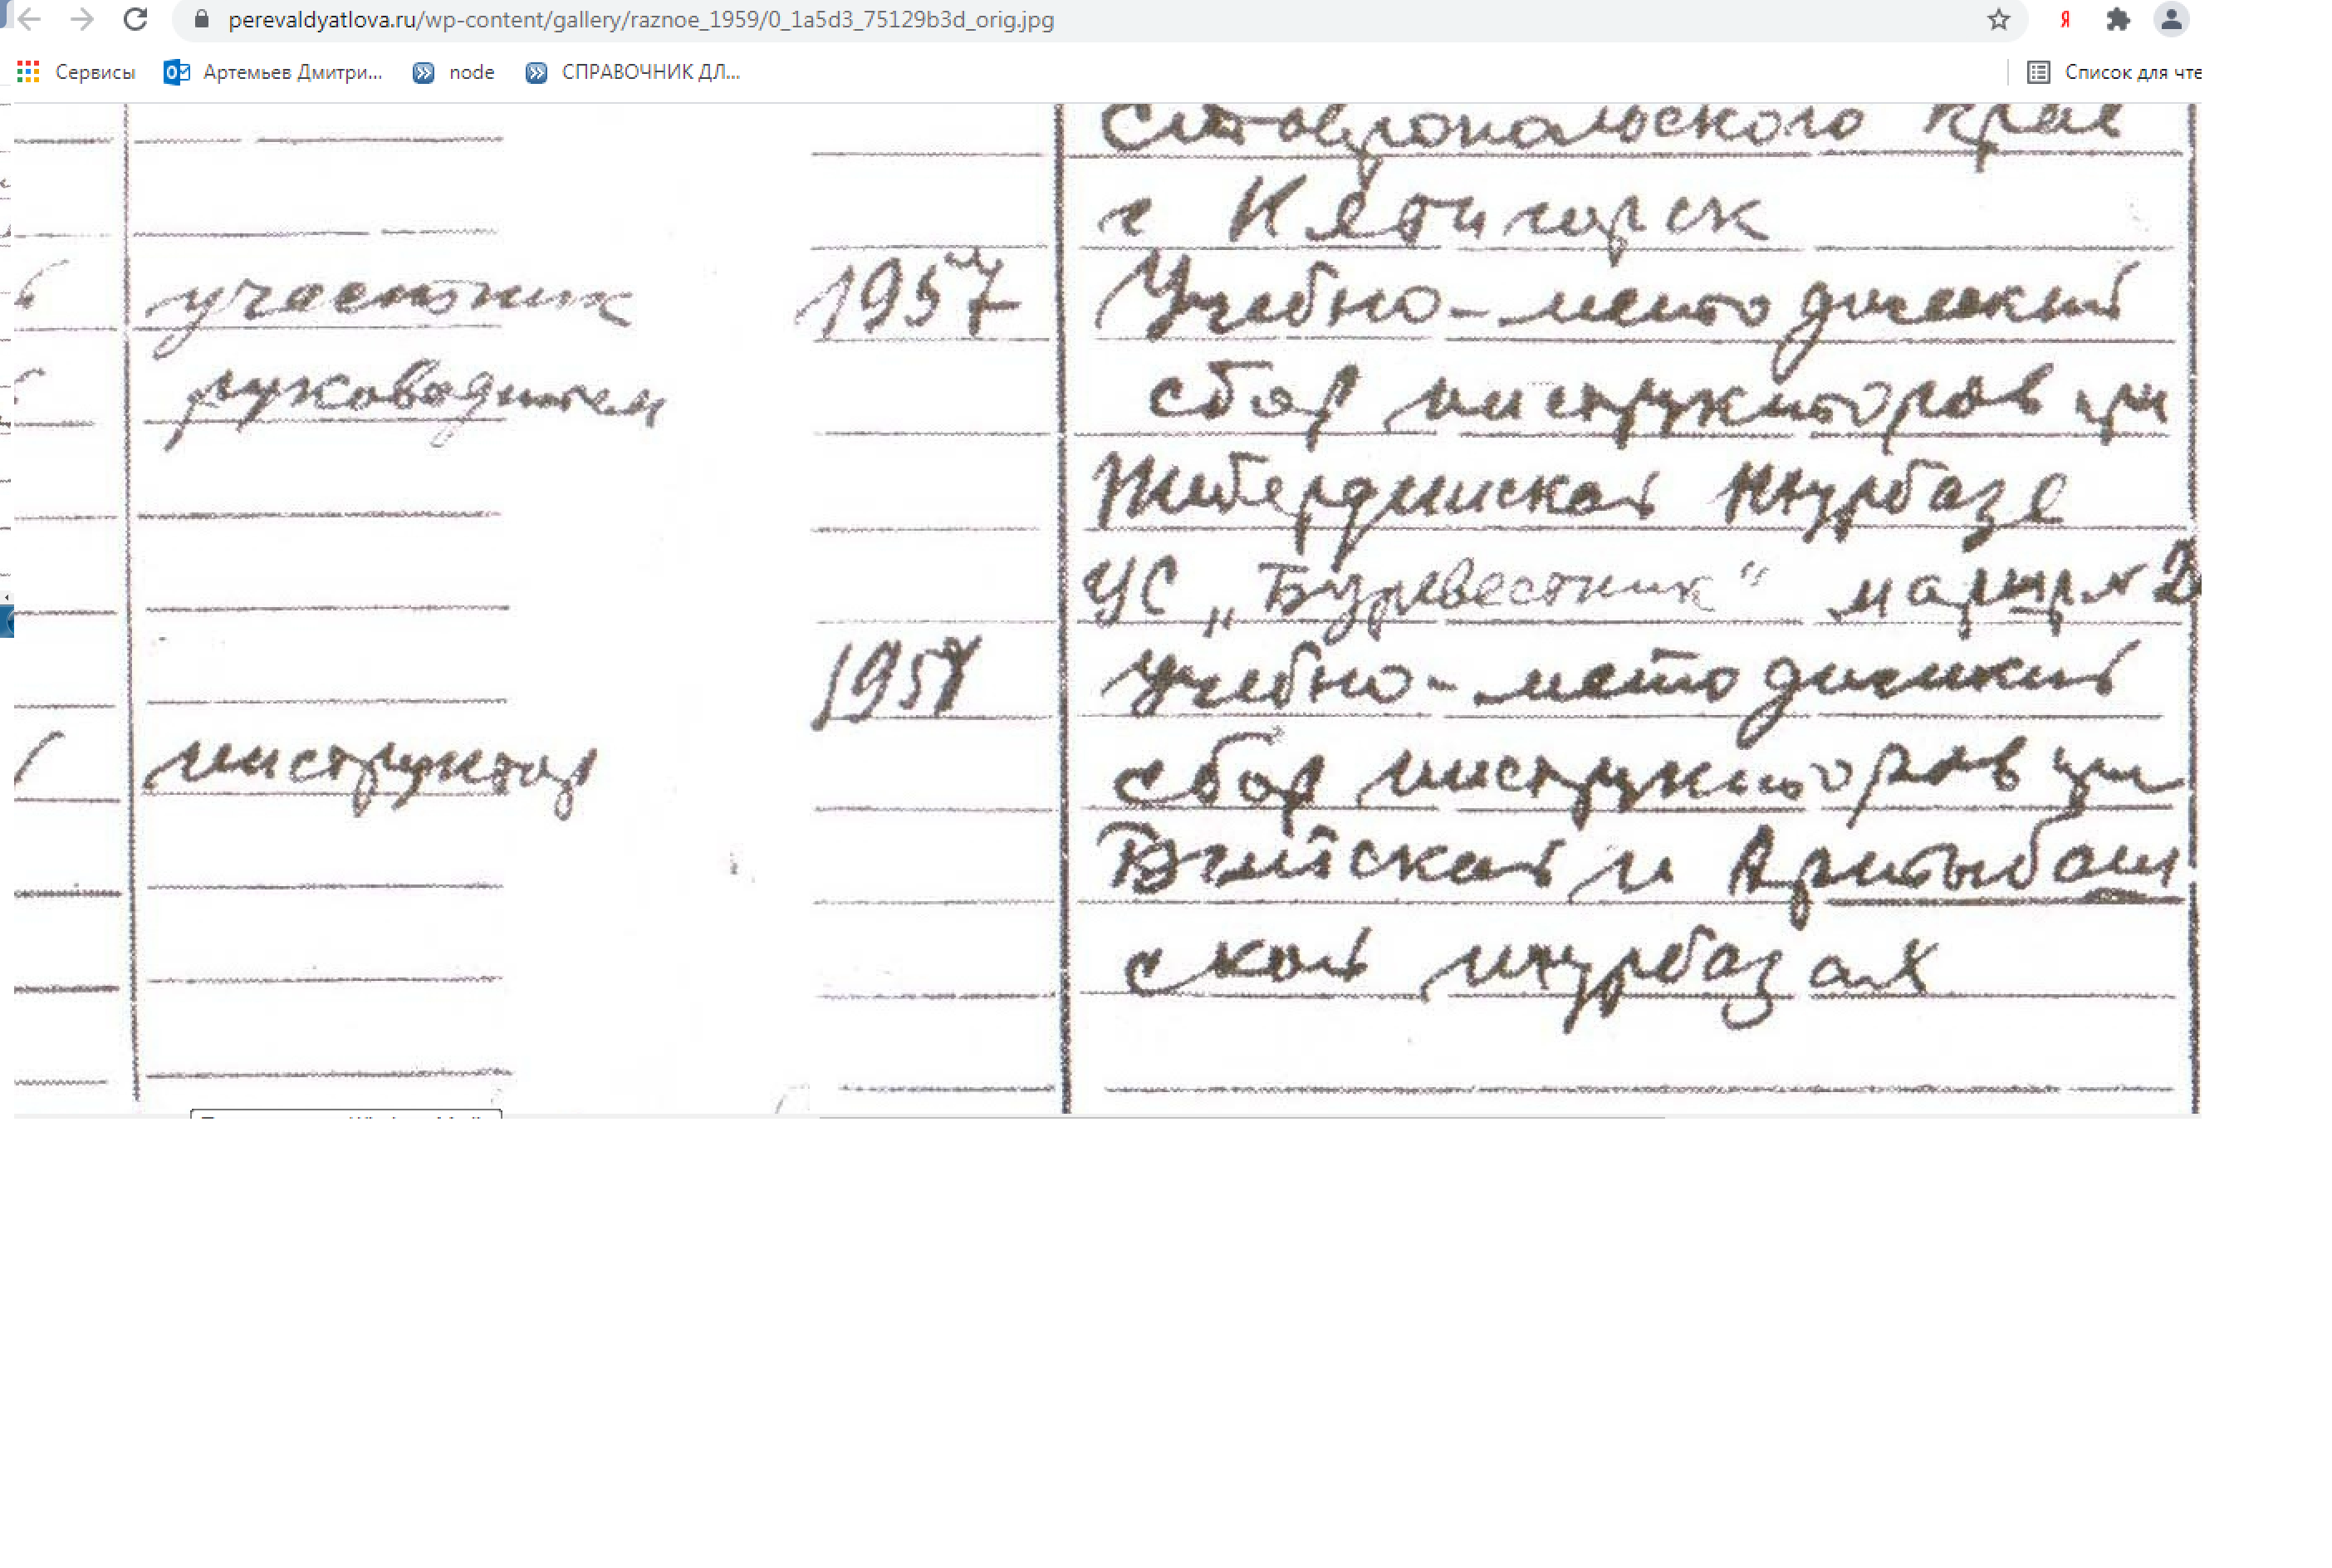 perevaldyatlova.ru/wp-content/gallery/raznoe_1959/0_1a5d3_75129b3d_orig.jpg
Я
Сервисы
Артемьев Дмитри...
node
СПРАВОЧНИК ДЛ...
Список для чте
Ставропольского края
г Пятигорск
участник
1957
Учебно-методический
руководителем
сбор инструкторов при
Тибердинской турбазе
УС „Буревестник" маршр
1958
учебно-методический
инструктор
сбор инструкторов при
Бийской и Артыбаш
ской турбазах